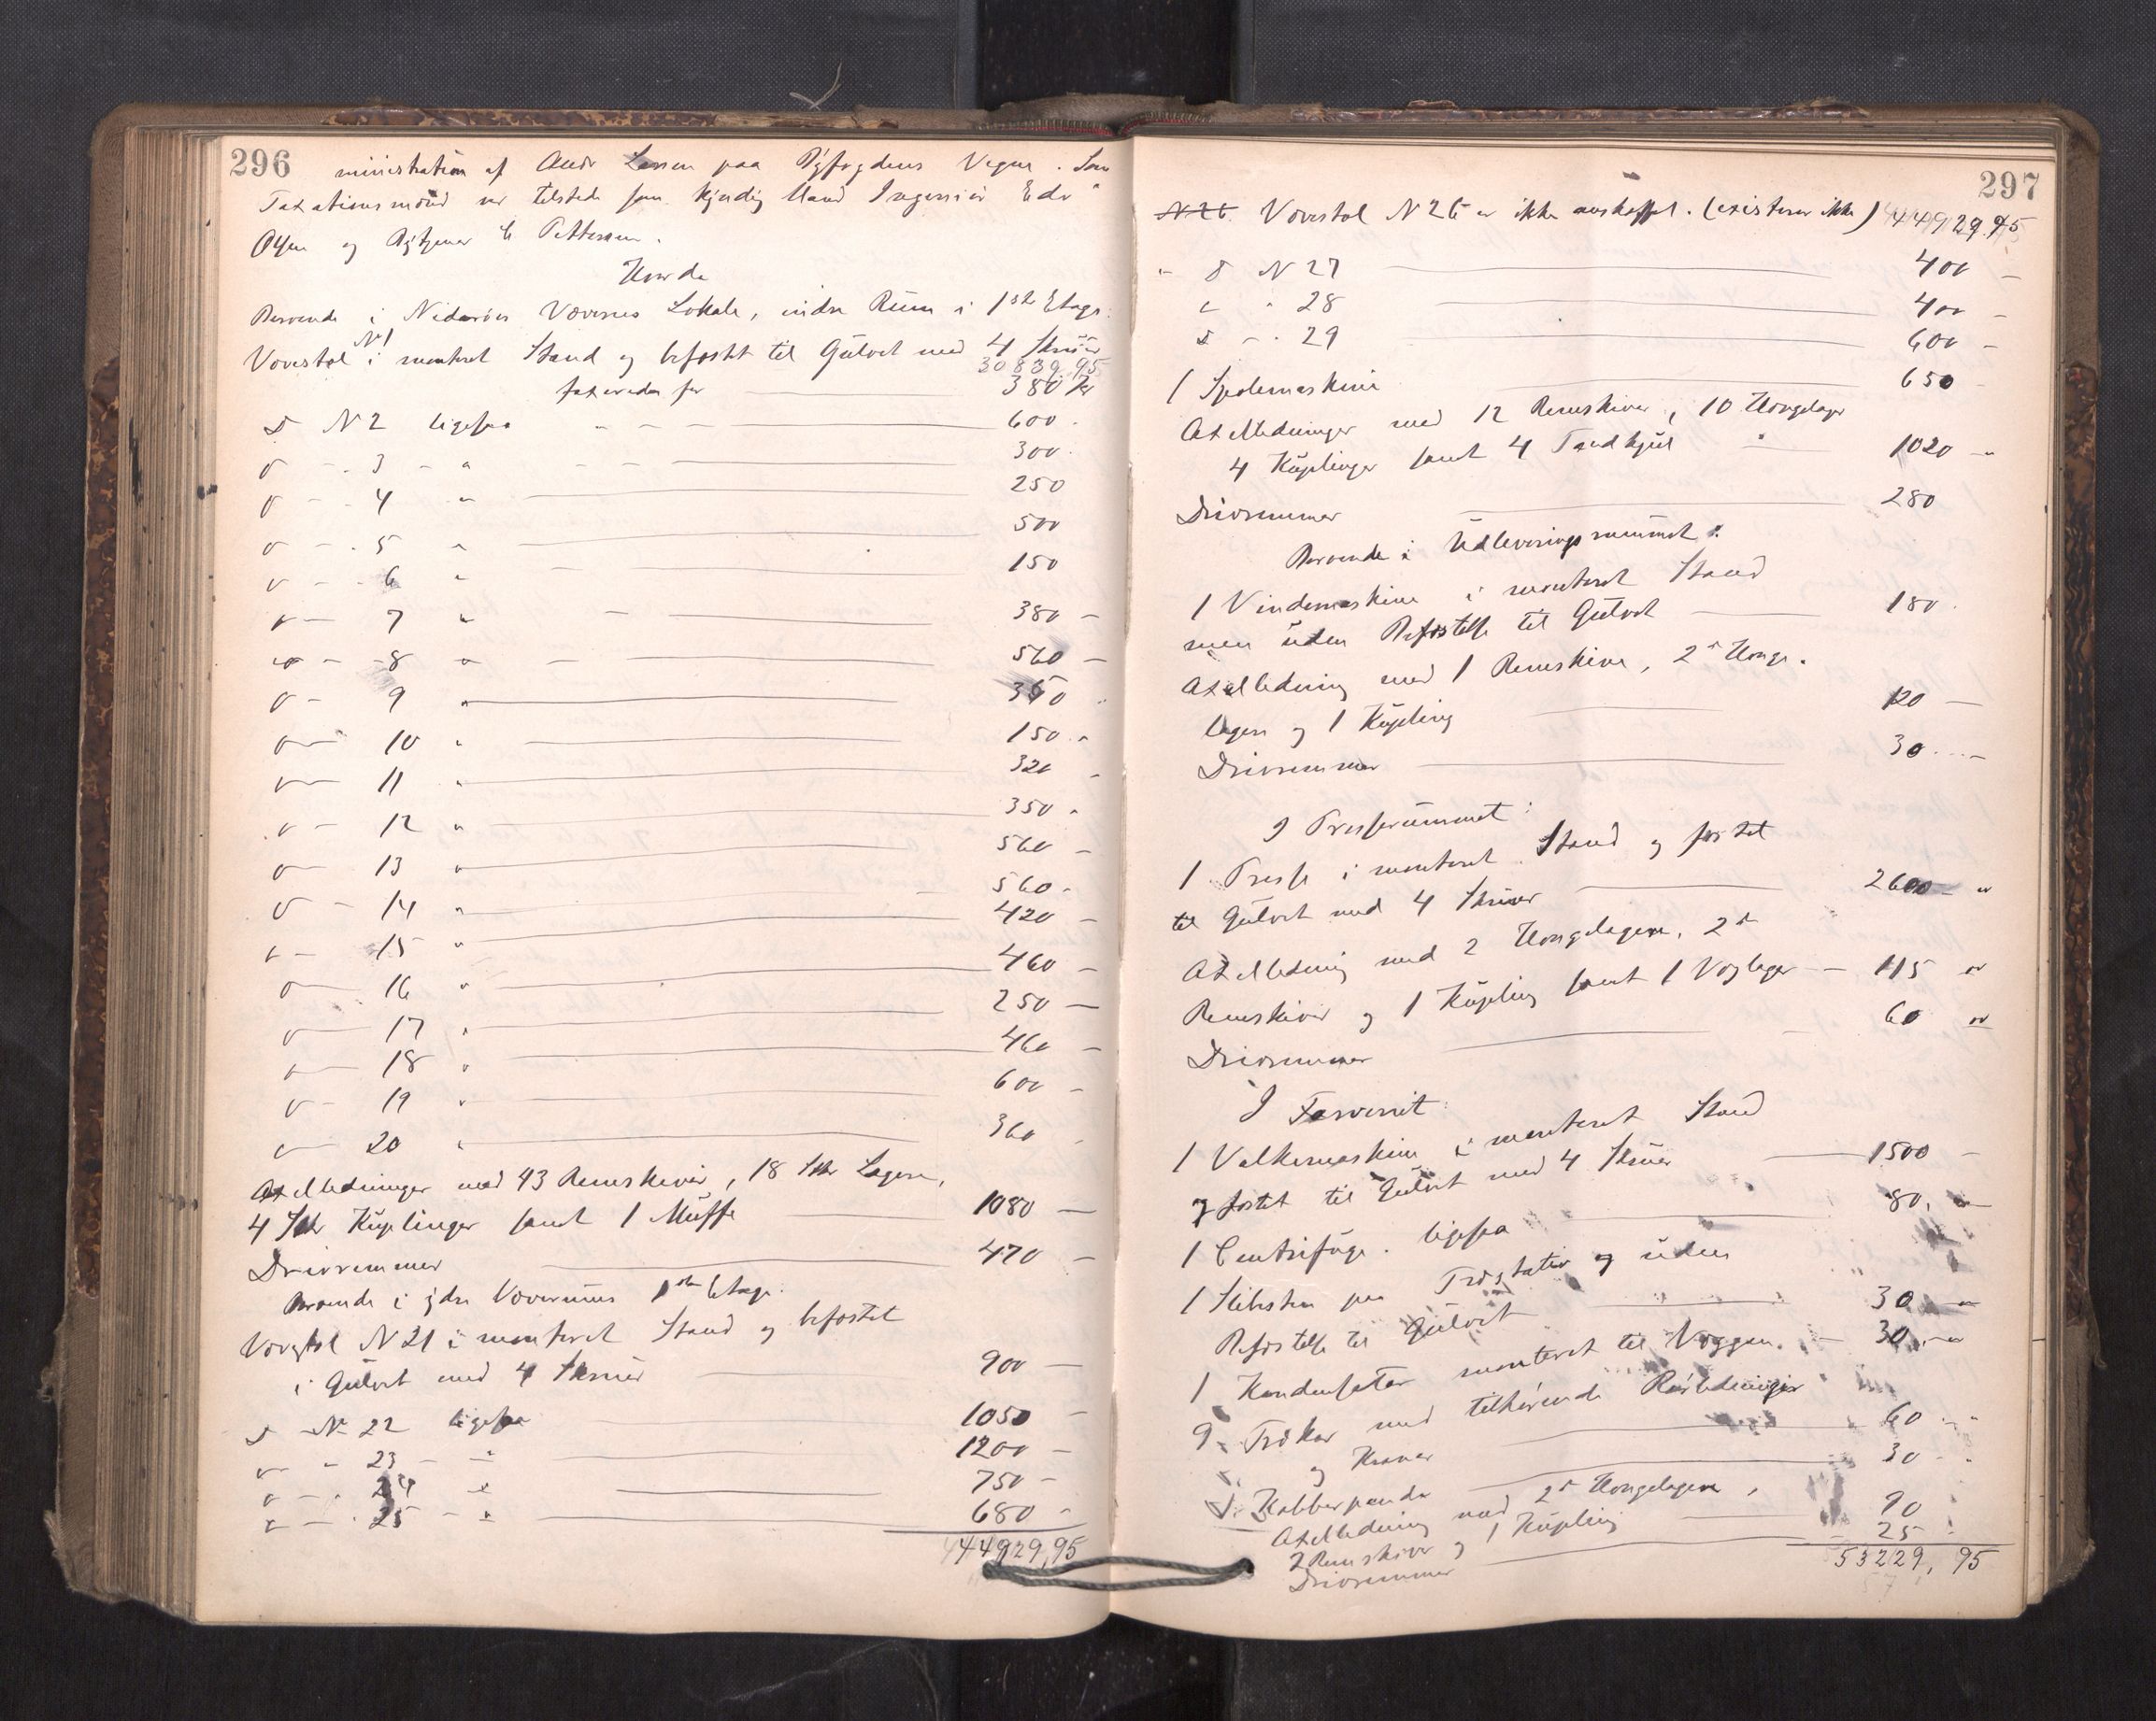 296
ministration af Andr Larsen paa Byfogdens Vegne. Som
Taxationsmænd var tilstede som kyndig Mand Ingeniør Edv
Olsen og Bytjener C Pettersen.
Hvorda
Beroende i Nidarøes Væveries Lokale, indre Rum i 1ste Etage:
Vævestol N1 i monteret Stand og befæstet til Gulvet med 4 Skruer
30839,95
taxeredes for 380 Kr
D N 2 ligesaa 600 -
D - 3 - " 300 -
D - 4 " 250
D - 5 " 500
D - 6 " 150
D - 7 " 380 -
D - 8 " 560 -
D - 9 " 350 -
D - 10 " 150 -
D - 11 " 320 -
D - 12 " 350 -
D - 13 " 560 -
D - 14 " 560 -
D - 15 " 420 -
D - 16 " 460 -
D - 17 " 250 -
D - 18 " 460 -
D - 19 " 600 -
D - 20 " 360 -
Axelledninger med 43 Remskiver, 18 Stk Lagere,
4 Stk Kuplinger samt 1 Muffe 1080 -
Drivremmer 470 -
Beroende i ydre Væverums 1ste Etage:
Vævstol N 21 i monteret Stand og befæstet
i Gulvet med 4 Skruer 900 -
D N 22 ligesaa 1050 -
D " 23 - " 1200 -
D - " 24 " 750 -
D - " 25 - " 680 -
44929,95
297
N 26. Vævestol N 26 er ikke anskaffet. (existerer ikke) 44929.95
- D N 27 400 -
D " 28 400 -
D - " 29 600 -
1 Spolemaskine 650 -
Axelledninger med 12 Remskiver, 10 Hængelager
4 Kuplinger samt 4 Tandhjul 1020 -
Drivremmer 280
Beroende i Udleveringsrummet:
1 Vindemaskine i monteret Stand
men uden Befæstelse til Gulvet 180 -
Axelledning med 1 Remskive, 2 Hænge-
lagere og 1 Kupling 120 -
Drivremmer 30 -
I Presserummet:
1 Presse i monteret Stand og fæstet
til Gulvet med 4 Skruer 2600 -
Axelledning med 2 Hængelagere, 2
Remskiver og 1 Kupling samt 1 Væglager - 115 "
Drivremmer 60 "
I Farveriet:
1 Valkemaskine i monteret Stand
og fæstet til Gulvet med 4 Skruer 1500 -
1 Centrifuge. ligesaa 80, -
1 Slibsten paa Træstativ og uden
Befæstelse til Gulvet 30 -
1 Kondensator monteret til Væggen. - 30, -
9 Trækar med tilhørende Rørledninger
og Kraner 60 -
1 Kobberpande 30 -
Axelledning med 2 Hængelagere,
2 Remskiver og 1 Kupling 90
Drivremmer 25 -
53229,95